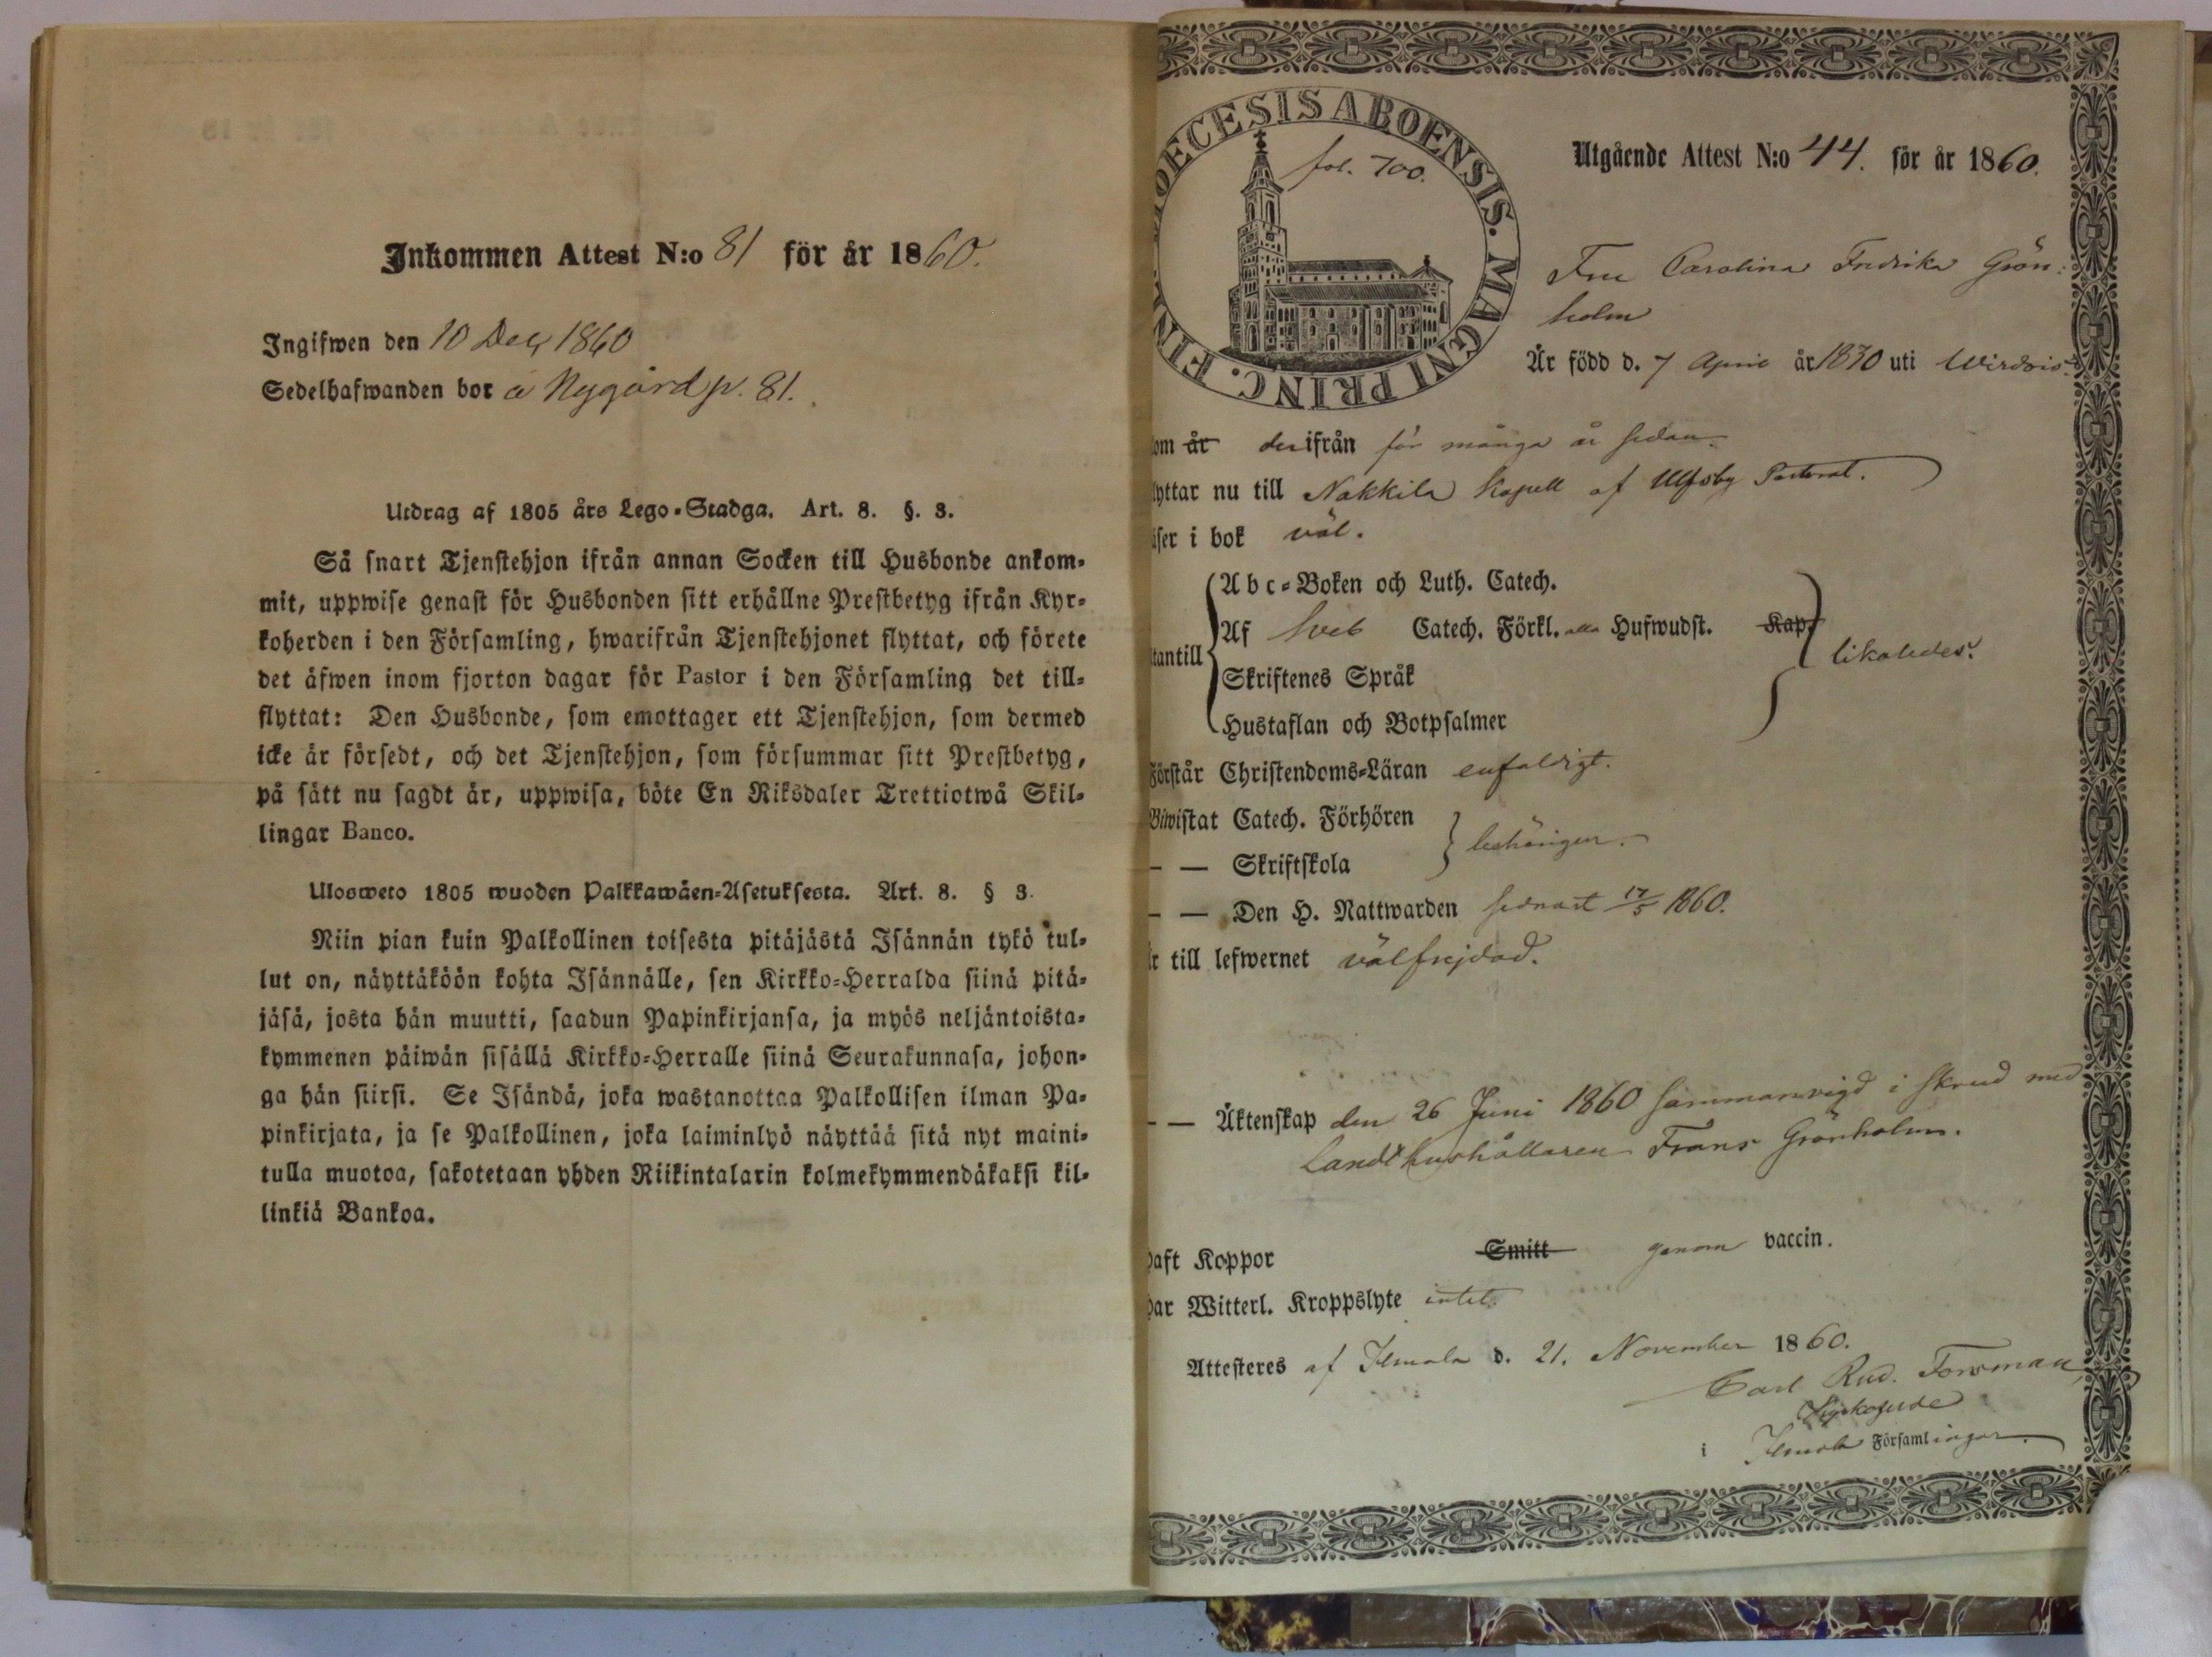 Inkommen Attest N:o 81 för år 1860.
Ingifwen den 10 Dec, 1860
Sedelhafwanden bor å Nygård p. 81.
Utdrag af 1805 års Lego-Stadga. Art. 8. §. 3.
Så snart Tjenstehjon ifrån annan Socken till Husbonde ankom-
mit, uppwise genast för Husbonden sitt erhållne Prestbetyg ifrån Kyr-
koherden i den Församling, hwarifrån Tjenstehjonet flyttat, och förete
det äfwen inom fjorton dagar för Pastor i den Församling det till-
flyttat: Den Husbonde, som emottager ett Tjenstehjon, som dermed
icke är försedt, och det Tjenstehjon, som försummar sitt Prestbetyg,
på sätt nu sagdt är, uppwisa, böte En Riksdaler Trettiotwå Skil-
lingar Banco.
Ulosweto 1805 wuoden Palkkawäen-Asetuksesta. Art. 8. § 3.
Niin pian kuin Palkollinen toisesta pitäjästä Isännän tykö tul-
lut on, näyttäköön kohta Isännälle, sen Kirkko-Herralda siinä pitä-
jäsä, josta hän muutti, saadun Papinkirjansa, ja myös neljäntoista-
kymmenen päiwän sisällä Kirkko-Herralle siinä Seurakunnasa, johon-
ga hän siirsi. Se Isändä, joka wastanottaa Palkollisen ilman Pa-
pinkirjata, ja se Palkollinen, joka laiminlyö näyttää sitä nyt maini-
tulla muotoa, sakotetaan yhden Riikintalarin kolmekymmendäkaksi kil-
linkiä Bankoa.
DIOECESIS ABOENSIS. MAGNI PRINC. FINL.
fol. 700.
Utgående Attest N:o 44. för år 1860.
Fru Carolina Fredrika Grön-
holm
Är född d. 7 April år 1830 uti Wirdois.
om år derifrån för många år sedan.
lyttar nu till Nakkila Kapell af Ulfsby Pastorat.
äser i bok väl.
Abc-Boken och Luth. Catech.
Af Sveb Catech. Förkl. alla Hufwudst. Kap.
likaledes.
tantill
Skriftenes Språk
Hustaflan och Botpsalmer
Förstår Christendoms-Läran enfaldigt.
Biwistat Catech. Förhören
behörigen.
— — Skriftskola
— — Den H. Nattwarden sednast 17/5 1860.
är till lefwernet välfrejdad.
— — Äktenskap den 26 Juni 1860 sammanvigd i Skrud med
Landthushållaren Frans Grönholm.
haft Koppor Smitt genom vaccin.
har Witterl. Kroppslyte intet.
Attesteres af Ilmola d. 21. November 1860.
Carl Rud. Forsman
Kyrkoherde
i Ilmola Församlingar.